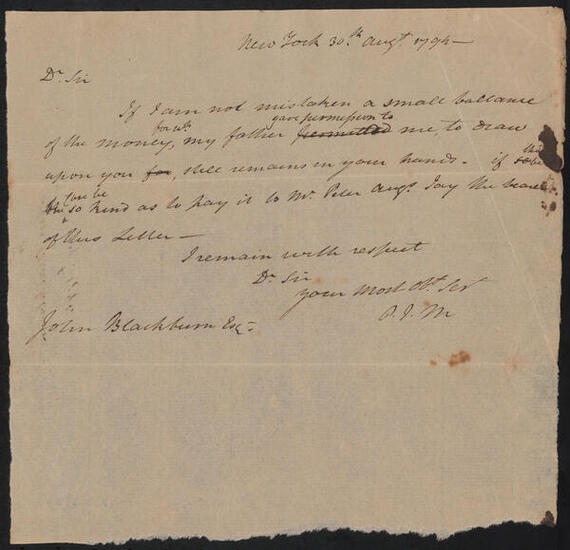 New York 30th Augt. 1794—
Dr. Sir
If I am not mistaken a small ballance
for wh. gave permission to
of the money, my father permitted me, to draw
this
upon you for, still remains in your hands. if so be
be
so kind as to pay it to Mr. Peter Augs. Jay the bearer
of this Letter—
I remain with respect
Dr. Sir
your Most Obt. Ser
P. J. M
John Blackburn Esqr.